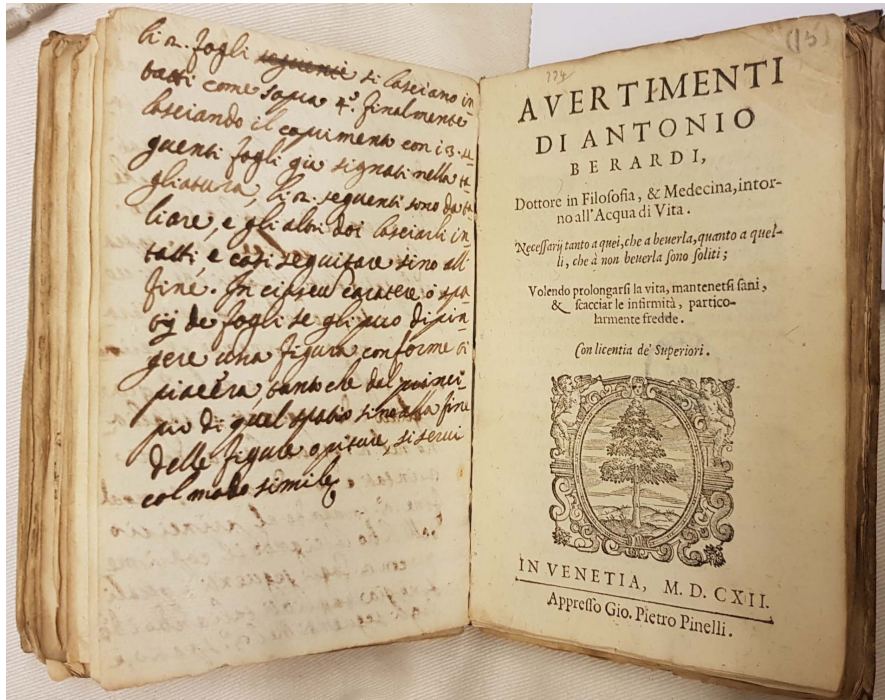 li 2. fogli seguenti si lasciano in
tatti come sopra 4.° finalmente
lasciando il copimento con i 3. se
guenti fogli gia signati nella ta
gliatura, li 2. seguenti sono da ta
liare, e gli altri doi lasciarli in
tatti, e cosi seguitare sino all'
fine. In ciascu caratere o spa
tij de fogli se gli puo dipin
gere una figura conforme ti
piacera, tanto che dal princi
pio di quel spatio sino alla fine
delle figure o piture, si servi
col modo simile
224
(15)
AVERTIMENTI
DI ANTONIO
BERARDI,
Dottore in Filoſofia, & Medecina, intor-
no all'Acqua di Vita.
Neceſſarij tanto a quei, che a beuerla, quanto a quel-
li, che à non beuerla ſono ſoliti;
Volendo prolongarſi la vita, mantenerſi ſani,
& ſcacciar le infirmità, partico-
larmente fredde.
Con licentia de' Superiori.
IN VENETIA, M. D. CXII.
Appreſſo Gio. Pietro Pinelli.